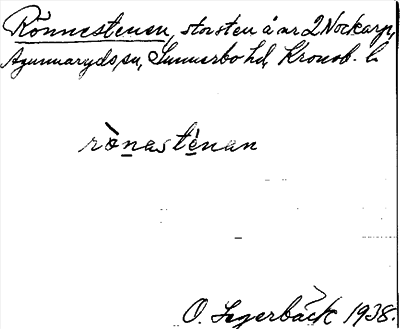 Rönnestenen, stor sten å nr 2 Nockarp,
Agunnaryds sn, Sunnerbo hd, Kronob. l.
rònasténan
O. Segerbäck 1938.